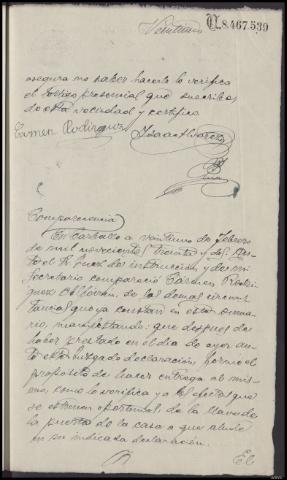 Veintiuno
N.8.467.539
asegura no saber hacerlo lo verifica
el testigo presencial que suscribe
de esta vecindad y certifico
Carmen Rodriguez
Comparecencia
En Carballo a veintiuno de febrero
de mil novecientos treinta y dos. Ante
el Sr. Juez de instrucción y de mi
Secretario compareció Carmen Rodri
guez, de las demas circuns
tancias que ya constan en este suma
rio, manifestando: que despues de
haber prestado en el dia de ayer an
te este Juzgado declaración, formó el
proposito de hacer entrega al mis
mo, como lo verifica y a los efectos que
se estimen oportunos de la llave de
la puerta de la casa a que alude
en su indicada declaración.
El